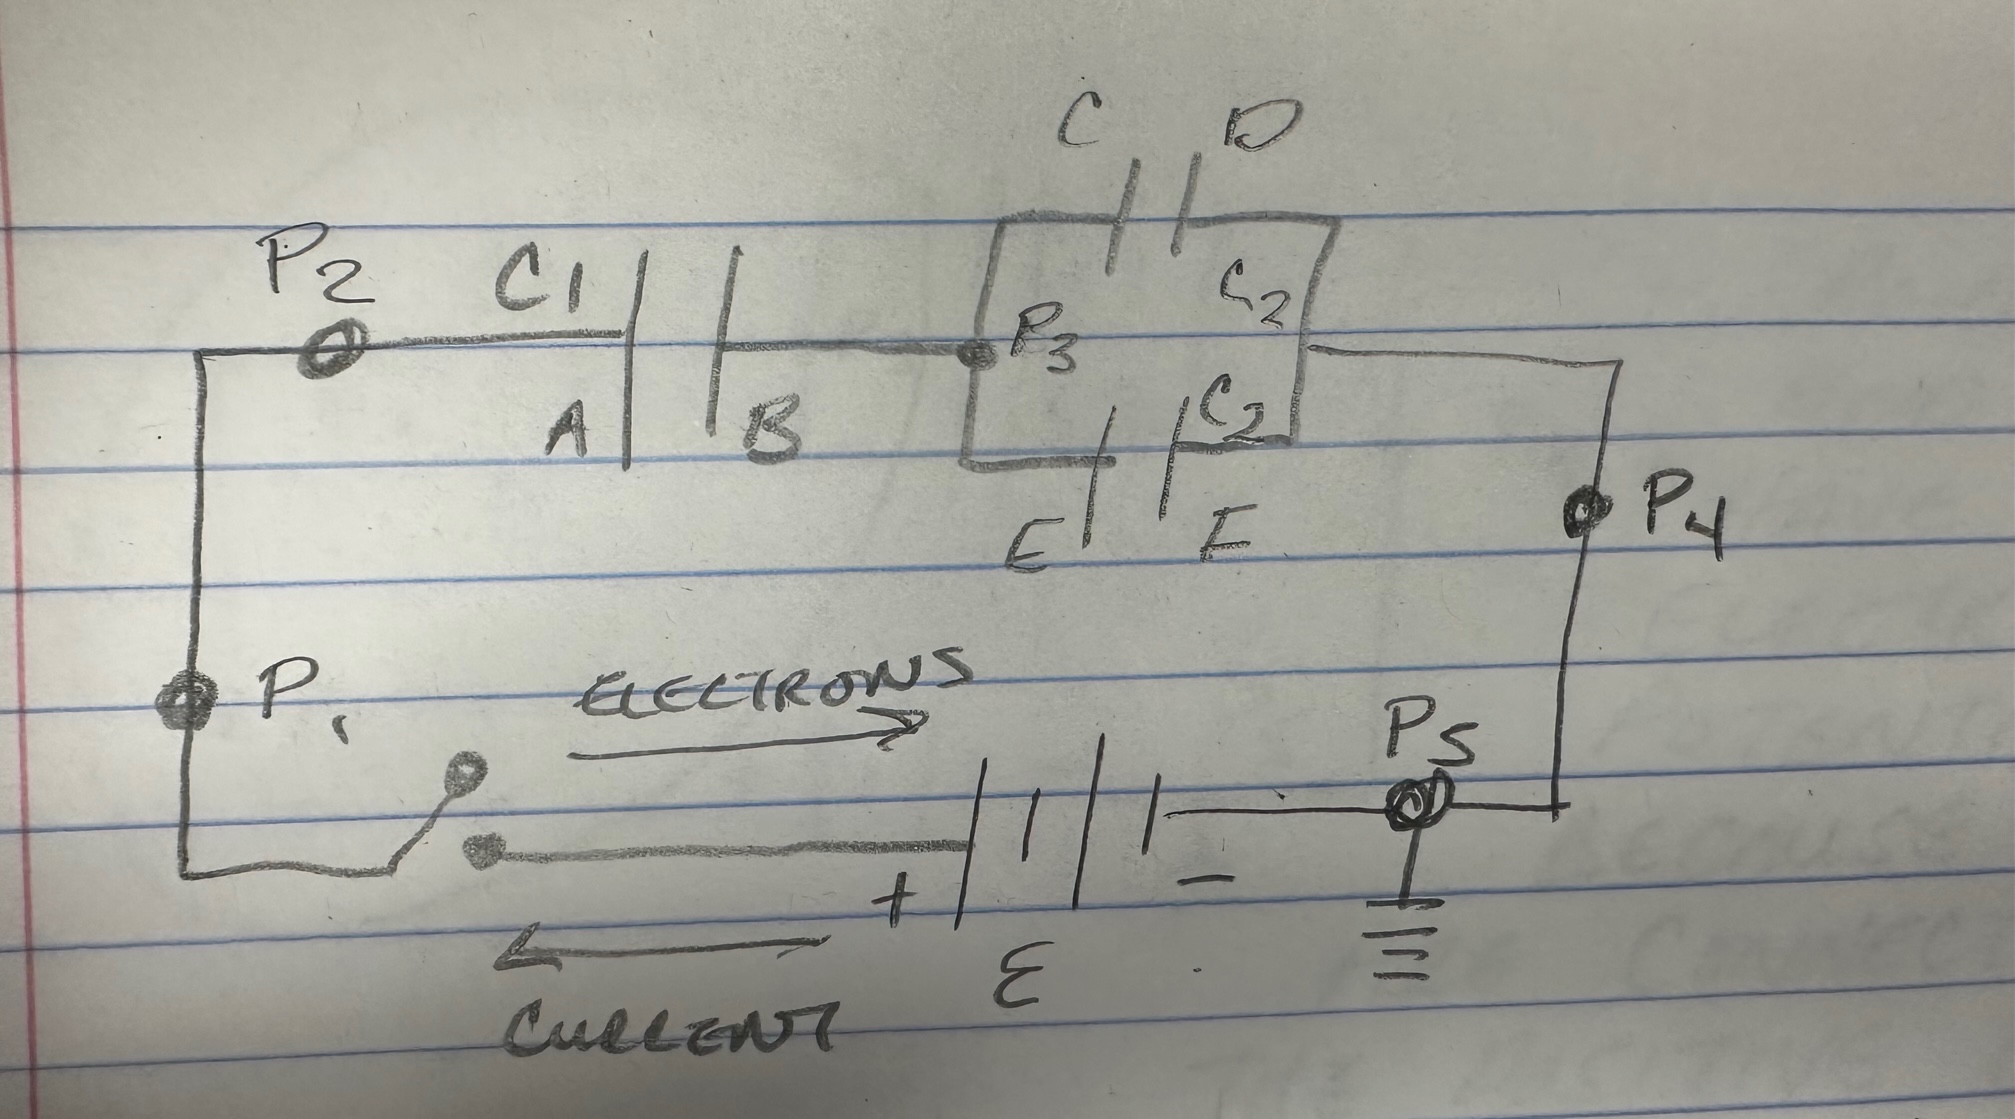 C D
P2 C1
C2
P3
A B
C2
E E
P4
P1
ELECTRONS
P5
+ −
ε
CURRENT